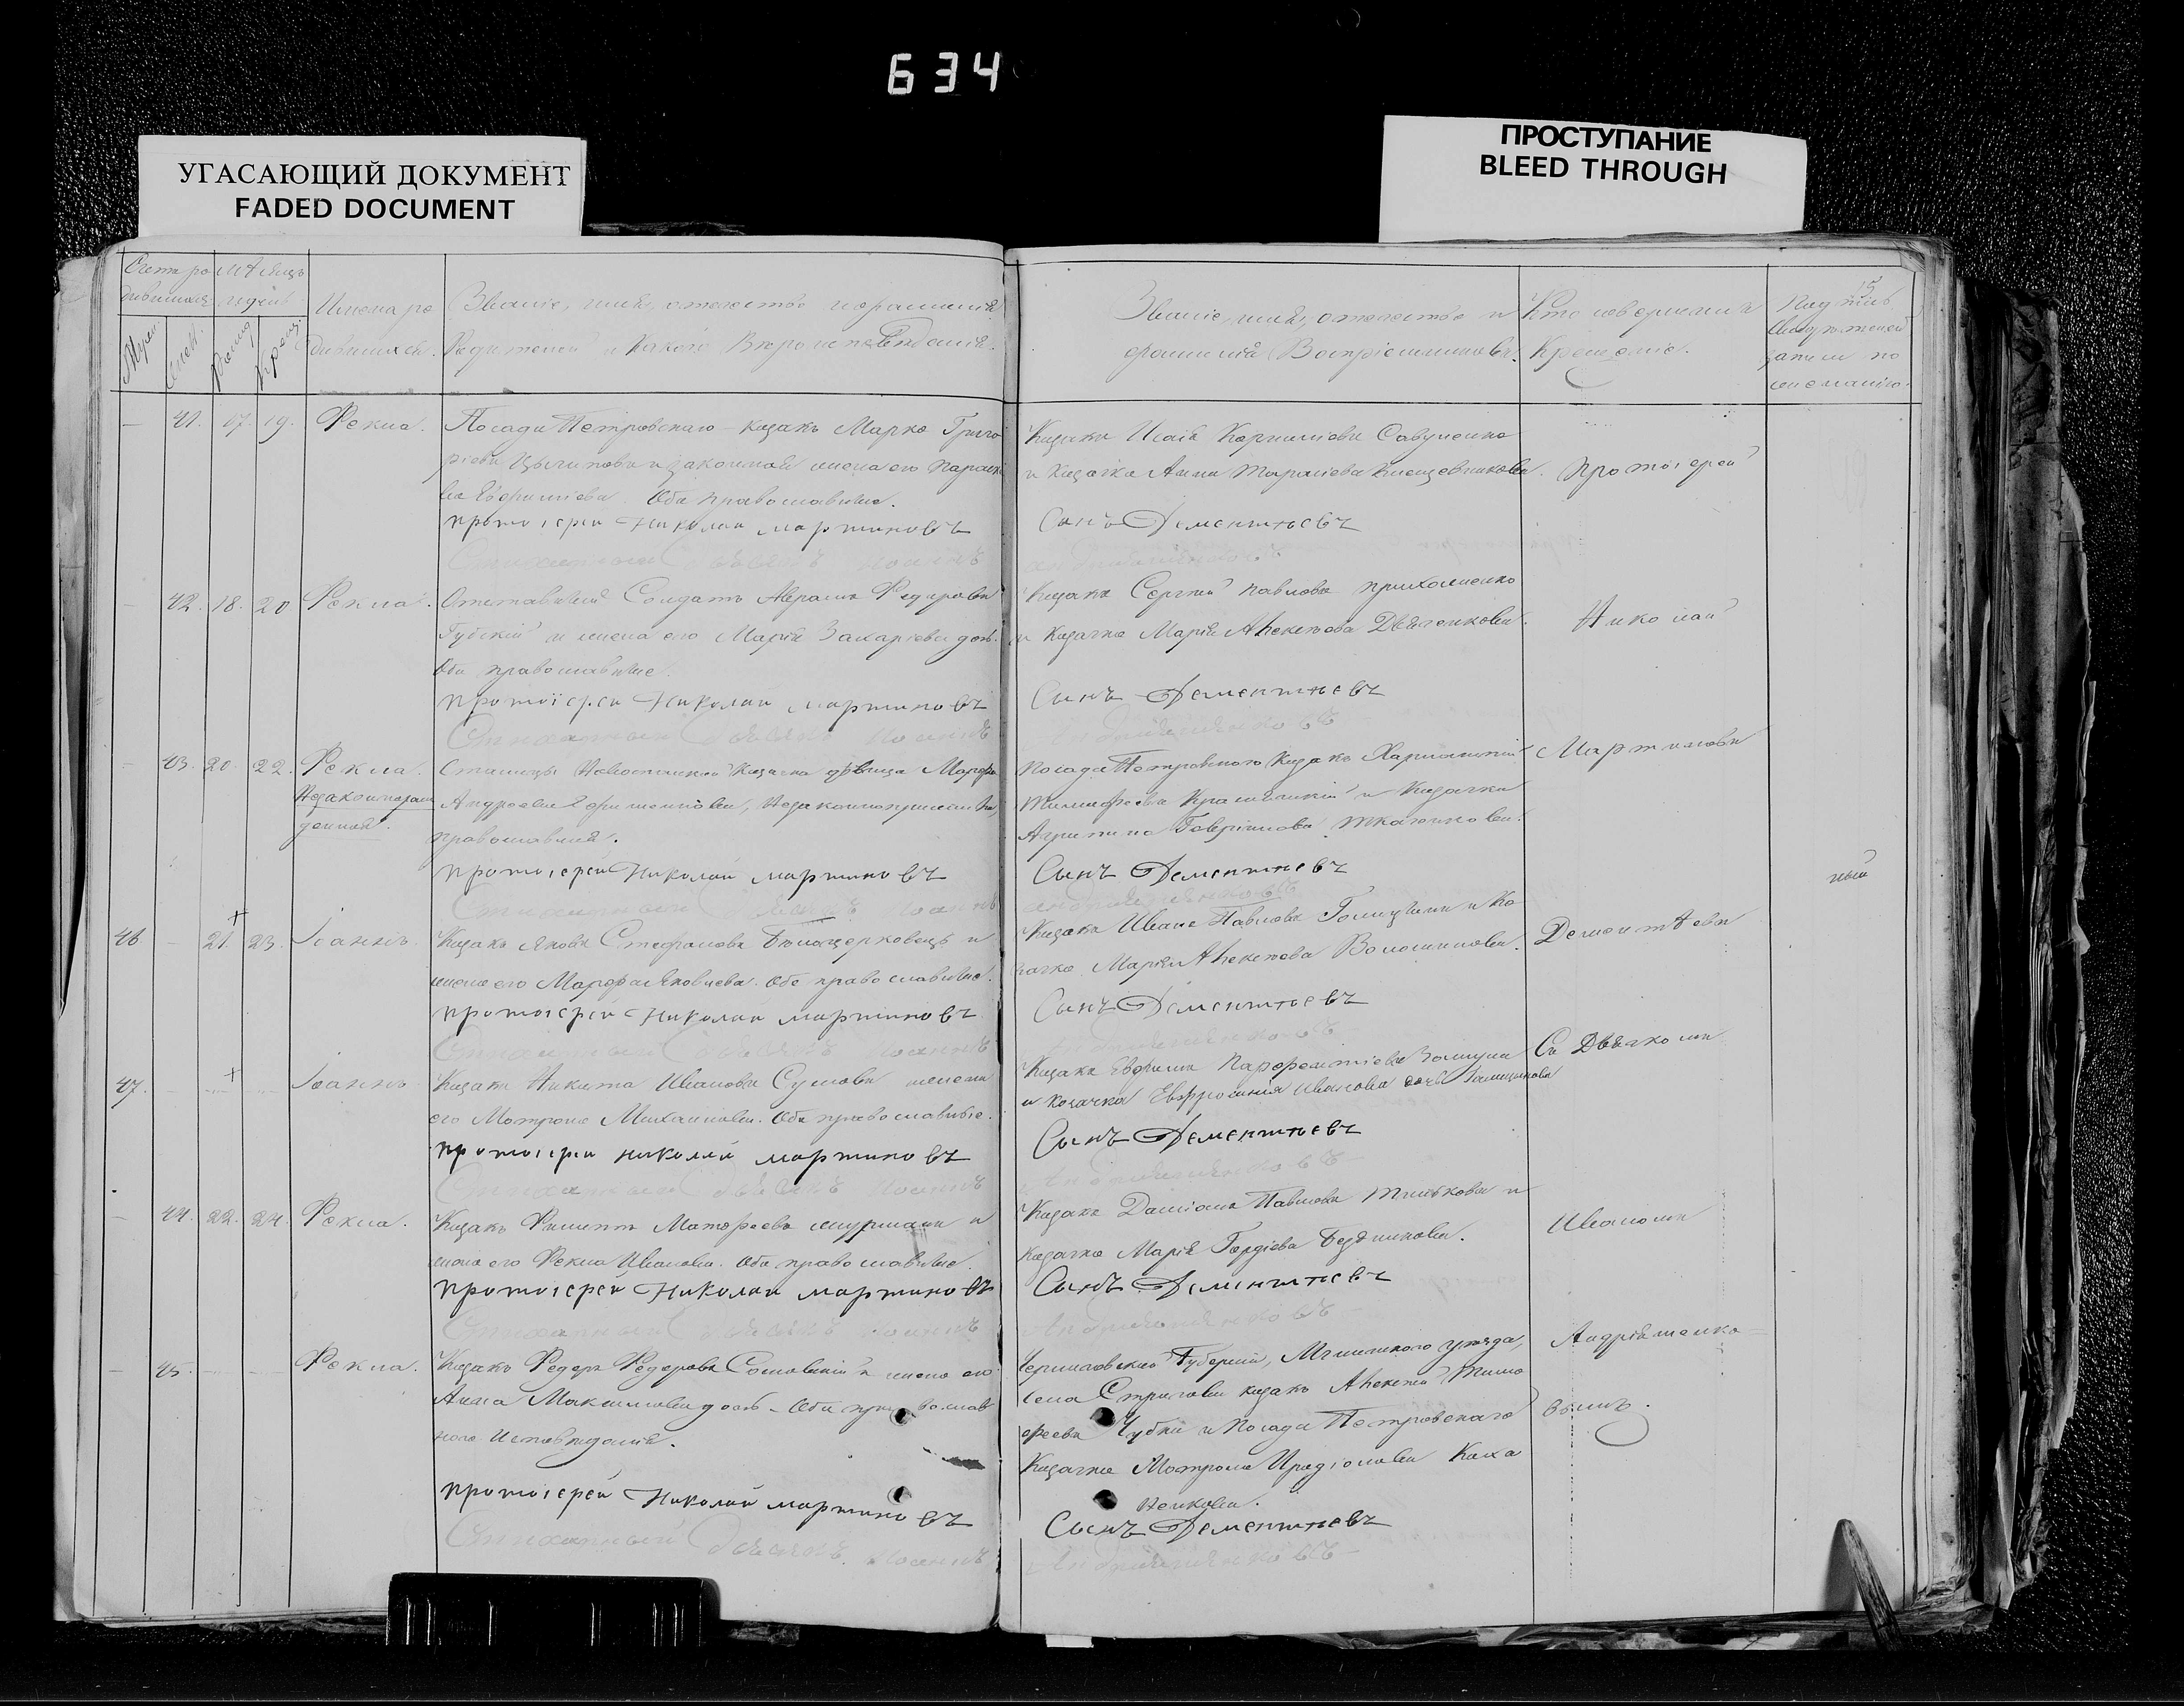 634
УГАСАЮЩИЙ ДОКУМЕНТ
FADED DOCUMENT
ПРОСТУПАНИЕ
BLEED THROUGH
15
Счетъ ро
дившихся
Мѣсяцъ
и день
Муж.
Женск.
Рожд.
Крещ.
Имена ро
дившихся.
Званіе, имя, отчество и фамилія
Родителей и какого Вѣроисповѣданія.
Званіе, имя, отчество и
фамилія Воспріемниковъ.
Кто совершилъ
Крещеніе.
41. 17. 19. Фекла.
Посада Петровскаго казакъ Марко Григо
рьевъ и законная жена его Параске
ва Ефиміева. Оба православные.
протоіерей Николай мартиновъ
Стихарный Дьячокъ Іоаннъ
Казакъ Исаія Корниліевъ Савученко
и казачка Анна Тарасіева
Сынъ Дементьевъ
Андріяшенковъ
Протоіерей
42. 18. 20 Фекла.
Отставной Солдатъ Аврамъ Федоровъ
Губскій и жена его Марія Захаріева дочь.
Оба православные.
протоіерей Николай мартиновъ
Стихарный Дьячокъ Іоаннъ
Казакъ Сергій Павловъ Приходченко
и Казачка Марія Алексѣева Дьяченкова.
Сынъ Дементьевъ
Андріяшенковъ
Николай
43. 20. 22. Фекла.
Незаконнорож
денная.
Станицы казачка дѣвица Марфа
Андреева Ефименкова,
православная.
протоіерей Николай мартиновъ
Стихарный Дьячокъ Іоаннъ
Посада Петровскаго Казакъ
Тимофеевъ и Казачка
Агрипина Гавріилова Ткаченкова.
Сынъ Дементьевъ
Андріяшенковъ
Мартиновъ
ный
46. 21. 23. Іоаннъ.
Казакъ Яковъ Стефановъ Бѣлоцерковецъ и
жена его Марфа Яковлева. Оба православные.
протоіерей Николай мартиновъ
Стихарный Дьячокъ Іоаннъ
Казакъ Иванъ Павловъ и Ка
зачка Марія Алексѣева Волошинова.
Сынъ Дементьевъ
Андріяшенковъ
Дементѣевъ
47. Іоаннъ
Казакъ Никита Ивановъ Сумовъ жена
его Матрона Михаилова. Оба православные.
протоіерей николай мартиновъ
Стихарный Дьячокъ Іоаннъ
Казакъ Ефимъ Парфентіевъ
и казачка Евфросинія Иванова дочь Галицынова
Сынъ Дементьевъ
Андріяшенковъ
Съ Дьячкомъ
44. 22. 24. Фекла.
Казакъ Филиппъ Матфеевъ и
жена его Фекла Иванова. Оба православные.
протоіерей Николай мартиновъ
Стихарный Дьячокъ Іоаннъ
Казакъ Даміанъ Павловъ и
казачка Марія Гордіева
Сынъ Дементьевъ
Андріяшенковъ
Иваномъ
45. Фекла.
Казакъ Федоръ Федоровъ и жена его
Анна Максимова дочь. Оба православ
наго Исповѣданія.
протоіерей Николай мартиновъ
Стихарный Дьячокъ Іоаннъ
Черниговской Губерніи, Мглинскаго уѣзда,
села казакъ Алексѣй Тимо
феевъ и Посада Петровскаго
Казачка Матрона Иродіонова Каха
ненкова.
Сынъ Дементьевъ
Андріяшенковъ
Андріяшенко
вымъ.